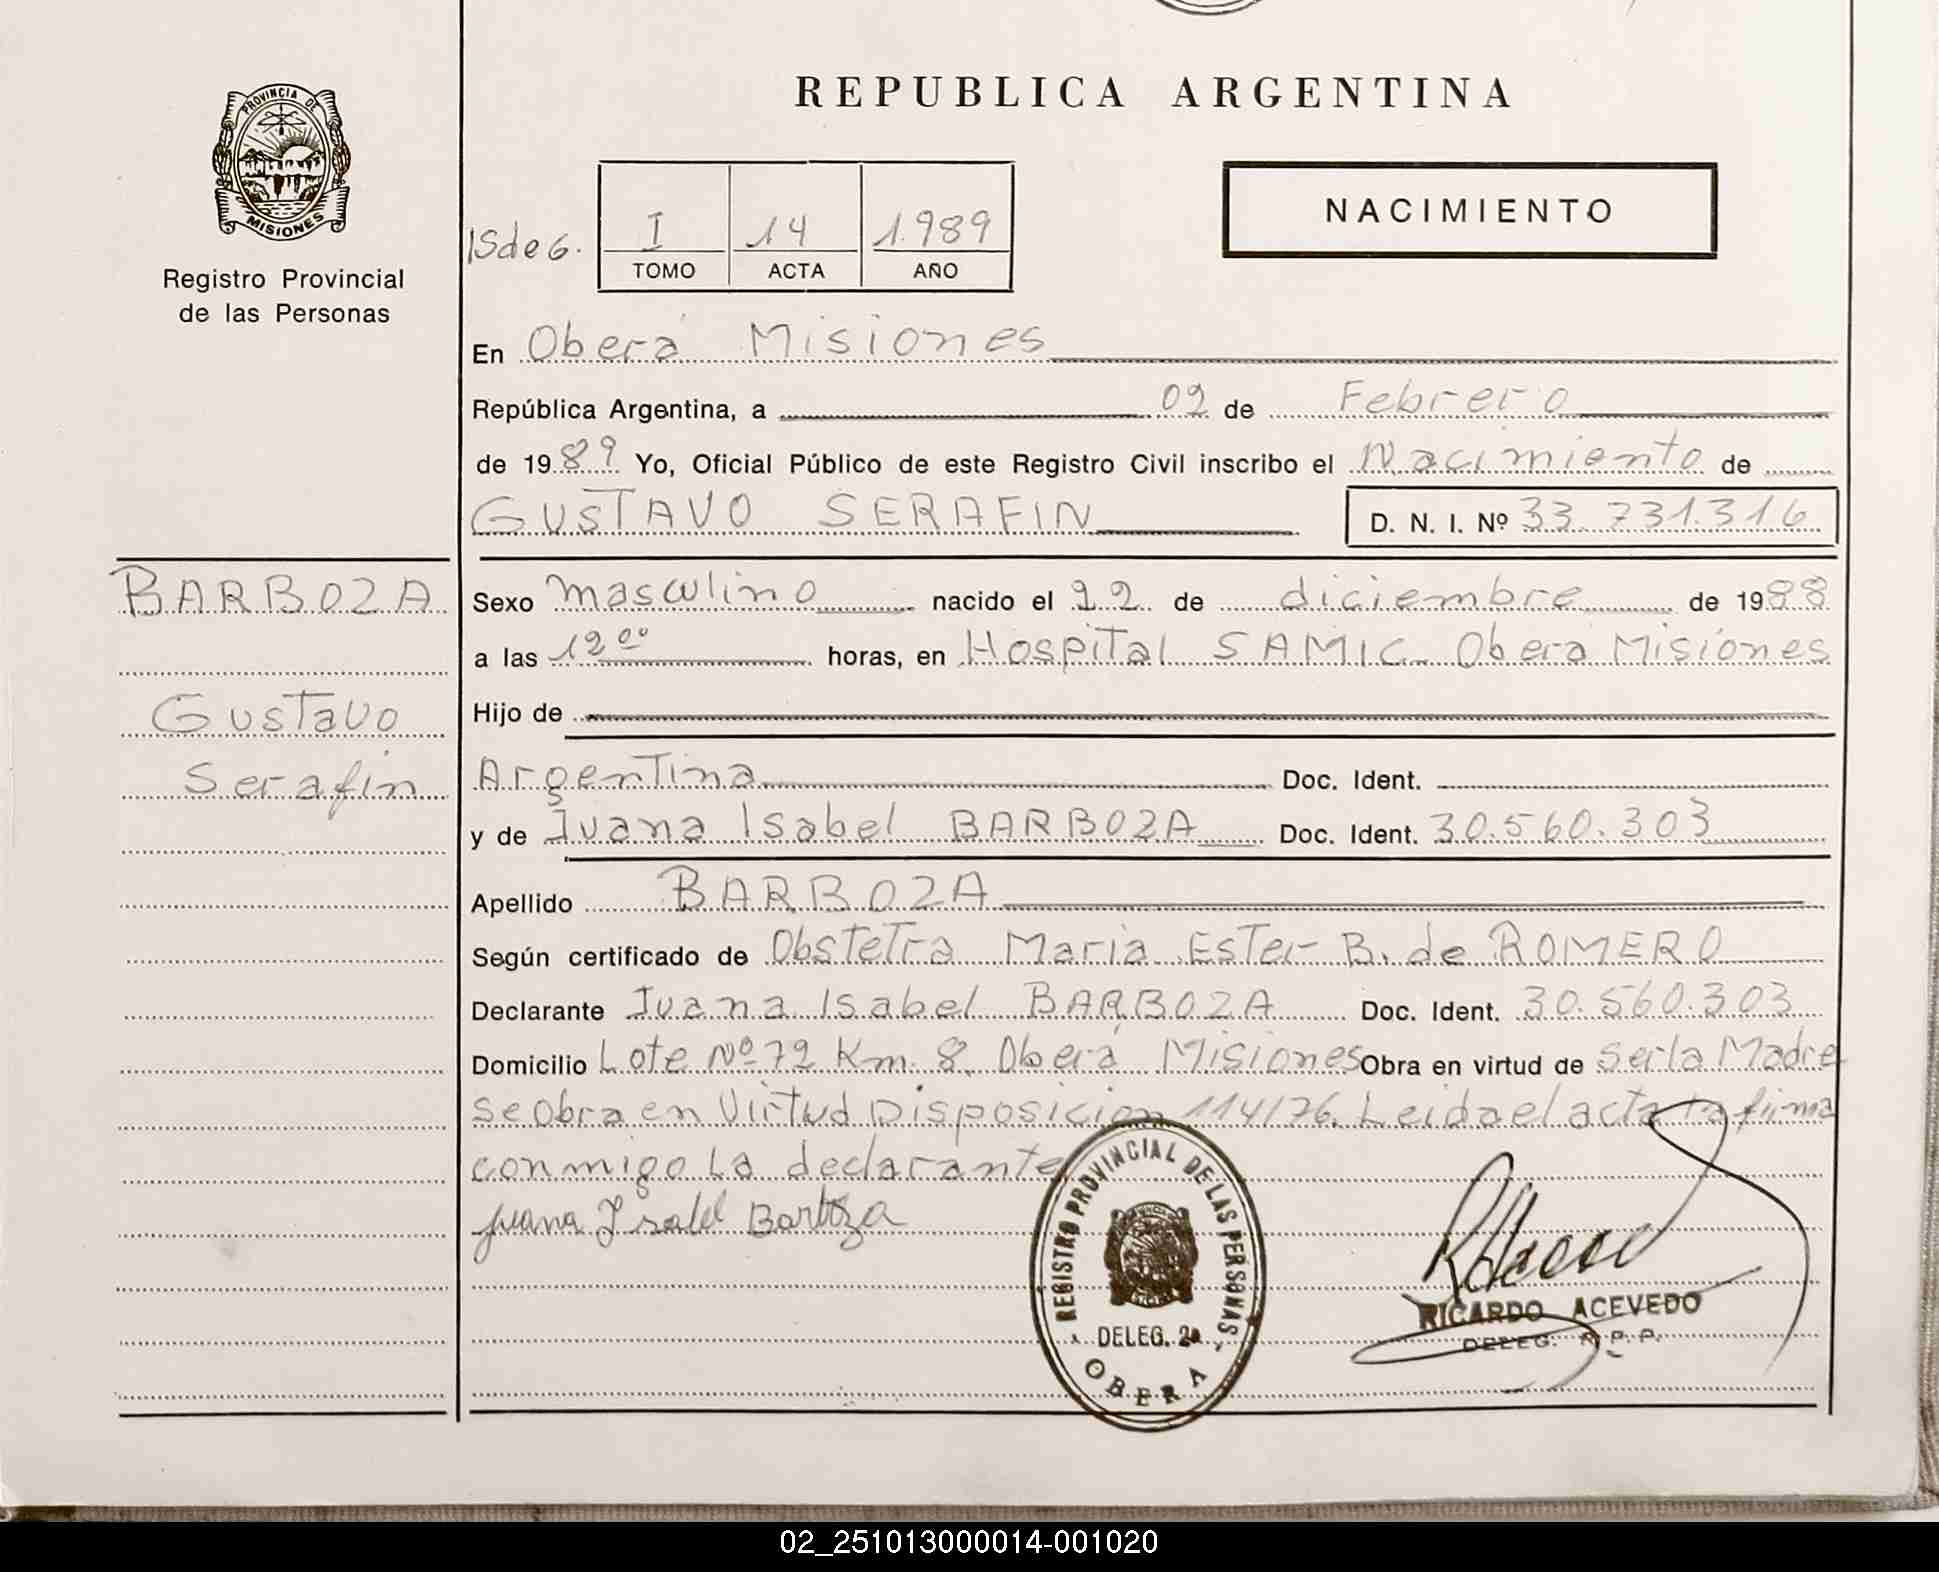 REPUBLICA ARGENTINA
PROVINCIA DE MISIONES
Registro Provincial
de las Personas
NACIMIENTO
I 14 1.989
TOMO ACTA AÑO
En Oberá Misiones
República Argentina, a 02 de Febrero
de 1989 Yo, Oficial Público de este Registro Civil inscribo el Nacimiento de
GUSTAVO SERAFIN D. N. I. Nº 33.731.316
BARBOZA
Gustavo
Serafin
Sexo masculino nacido el 22 de diciembre de 1988
a las 12 00 horas, en Hospital SAMIC Oberá Misiones
Hijo de
Argentina Doc. Ident.
y de Juana Isabel BARBOZA Doc. Ident. 30.560.303
Apellido BARBOZA
Según certificado de Obstetra Maria Ester B. de ROMERO
Declarante Juana Isabel BARBOZA Doc. Ident. 30.560.303
Domicilio Lote Nº 72 Km. 8. Oberá Misiones Obra en virtud de ser la Madre
se obra en Virtud Disposicion 114/76. Leida el acta la firma
conmigo La declarante
Juana Isabel Barboza
REGISTRO PROVINCIAL DE LAS PERSONAS
DELEG. 2a
OBERA
RICARDO ACEVEDO
DELEG. R. P. P.
02_251013000014-001020